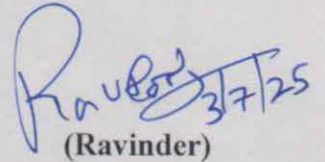 Ravinder
3/7/25
(Ravinder)